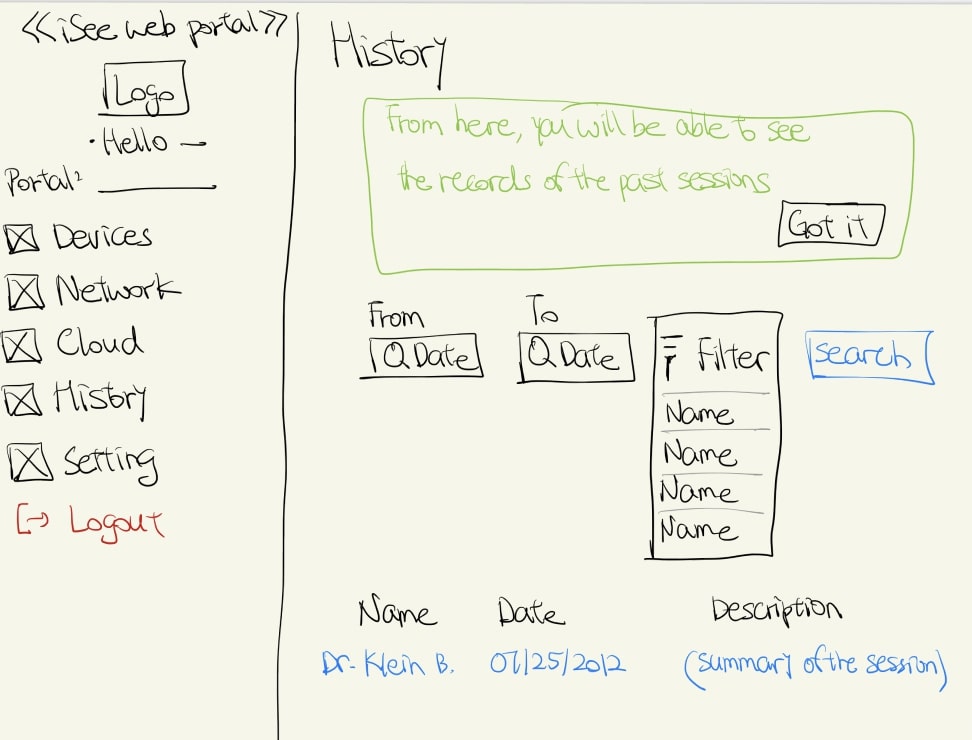 <<iSee web portal>>
Logo
·Hello —
Portal: ______
Devices
Network
Cloud
History
Setting
Logout
History
From here, you will be able to see
the records of the past sessions
Got it
From
To
Date
Date
Filter
Name
Name
Name
Name
search
Name Date Description
Dr. Klein B. 07/25/2012 (summary of the session)